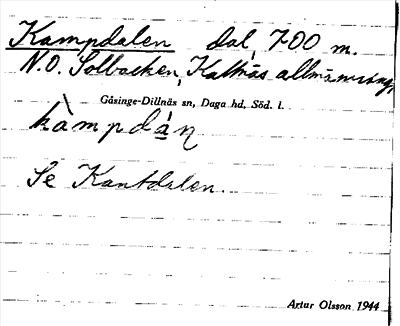 Kampdalen dal, 700 m.
N.O. Solbacken, Kattnäs allmänning,
Gåsinge-Dillnäs sn, Daga hd, Söd. l.
kàmpdạn
Se Kantdalen.
Artur Olsson 1944